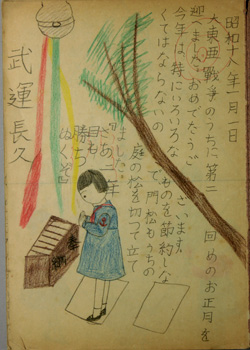 昭和十八年一月一日
大東亜戦争のうちに第二回めのお正月を
迎へましておめでたうございます
今年は特にいろいろなものを節約しな
くてはならないので門松もうちの
庭の松を切つて立て
ました。
さあ二年
目も
勝ち
ぬくぞ
武運長久
奉納